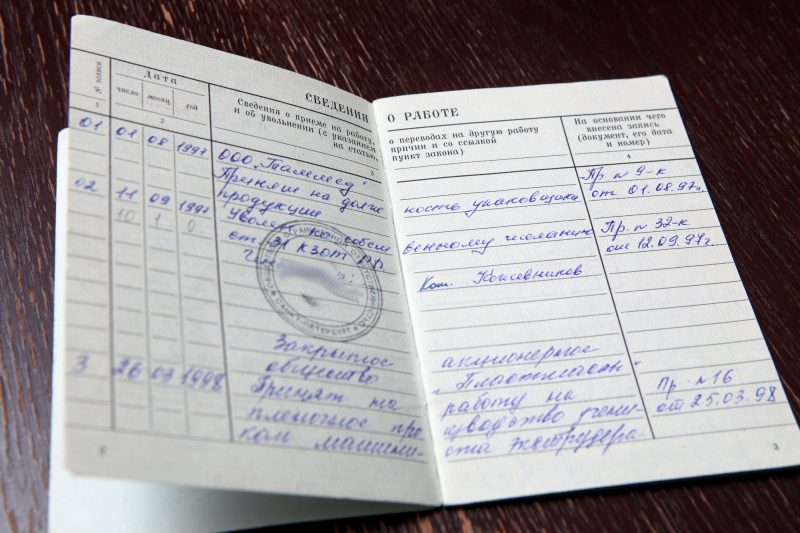 СВЕДЕНИЯ О РАБОТЕ
№ записи
Дата
число
месяц
год
Сведения о приеме на работу,
и об увольнении (с указанием
на статью,
о переводах на другую работу
причин и со ссылкой
пункт закона)
На основании чего
внесена запись
(документ, его дата
и номер)
1
2
3
4
01 01 08 1997 ООО „Таммед"
Принят на долж ность упаковщика Пр. № 9-к
продукции от 01.08.97г.
02 11 09 1997 Уволен по собст венному желанию Пр. № 32-к
10 1 0 от 31 КЗОТ РФ от 12.09.97г.
Кожевников
САНКТ-ПЕТЕРБУРГ
Закрытое акционерное
общество „Пластмассы"
3 26 03 1998 Принят на работу на Пр. №16
пленочное про изводство учени- от 25.03.98
ком машини- ста экструдера
3